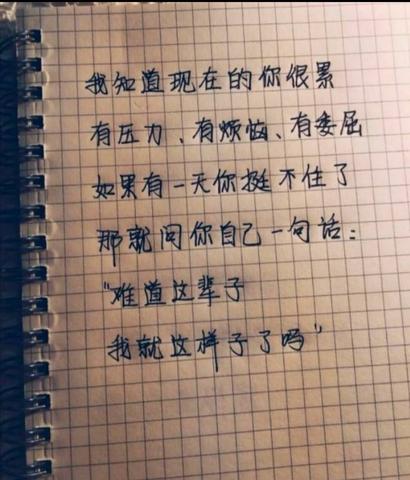 我知道现在的你很累
有压力、有烦恼、有委屈
如果有一天你挺不住了
那就问你自己一句话：
“难道这辈子
我就这样子了吗”